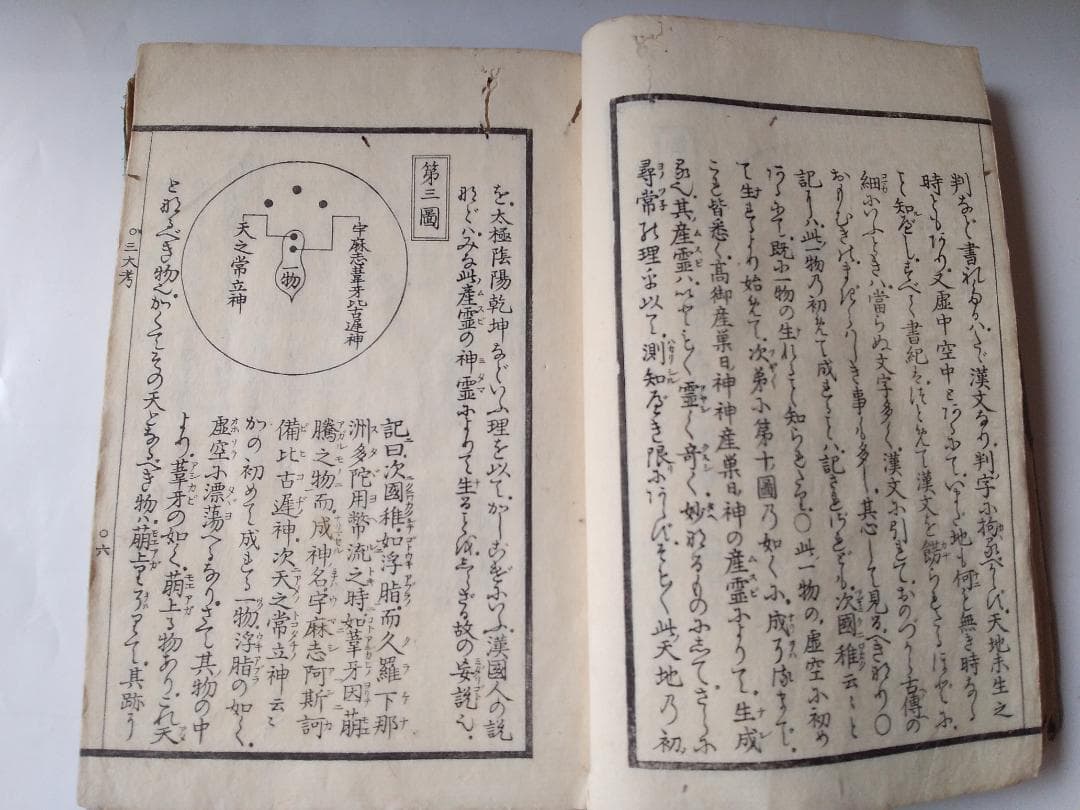 判など書れたるハたゞ漢文なり判字に拘るべからず天地未生之
時ともあり又虚中空中とあるにていまだ地も何も無き時なる
こと知べしすべて書紀はつとめて漢文を餝られたるほどに
細にいふときハ當らぬ文字多く漢文に引れておのづから古傳の
おもむきのまぎらハしき事も多し其心して見るべきなり〇
記にハ此一物乃初めて成れることハ記されざれども次國稚云々と
あるにて既に一物の生れること知られたり〇此一物の虚空に初め
て生れるより始めて次第に第十圖乃如くに成りをはるまで
こと〴〵皆悉く高御産巣日神神産巣日神の産霊によりて生成
る也其産霊ハいとも〳〵霊く奇く妙なるものにして さらに
尋常の理を以て測知べき限にあらずそも〳〵此天地乃初
を太極陰陽乾坤などいふ理を以てかしこげにいふ漢國人の説
などハみな此産霊の神霊によりて生ることをしらざる故の妄説也
第三圖
宇麻志葦牙比古遅神
一物
天之常立神
記曰次國稚如浮脂而久羅下那
洲多陀用幣流之時如葦牙因萠
騰之物而成神名宇麻志阿斯訶
備比古遅神次天之常立神云々
かの初めて成れる一物浮脂の如く
虚空に漂蕩へるなりさて其物の中
より葦牙の如く萠上る物ありこれ天
と成べき物也かくてその天となるべき物ハ萠上りをハりて其跡に
〇三大考
〇六